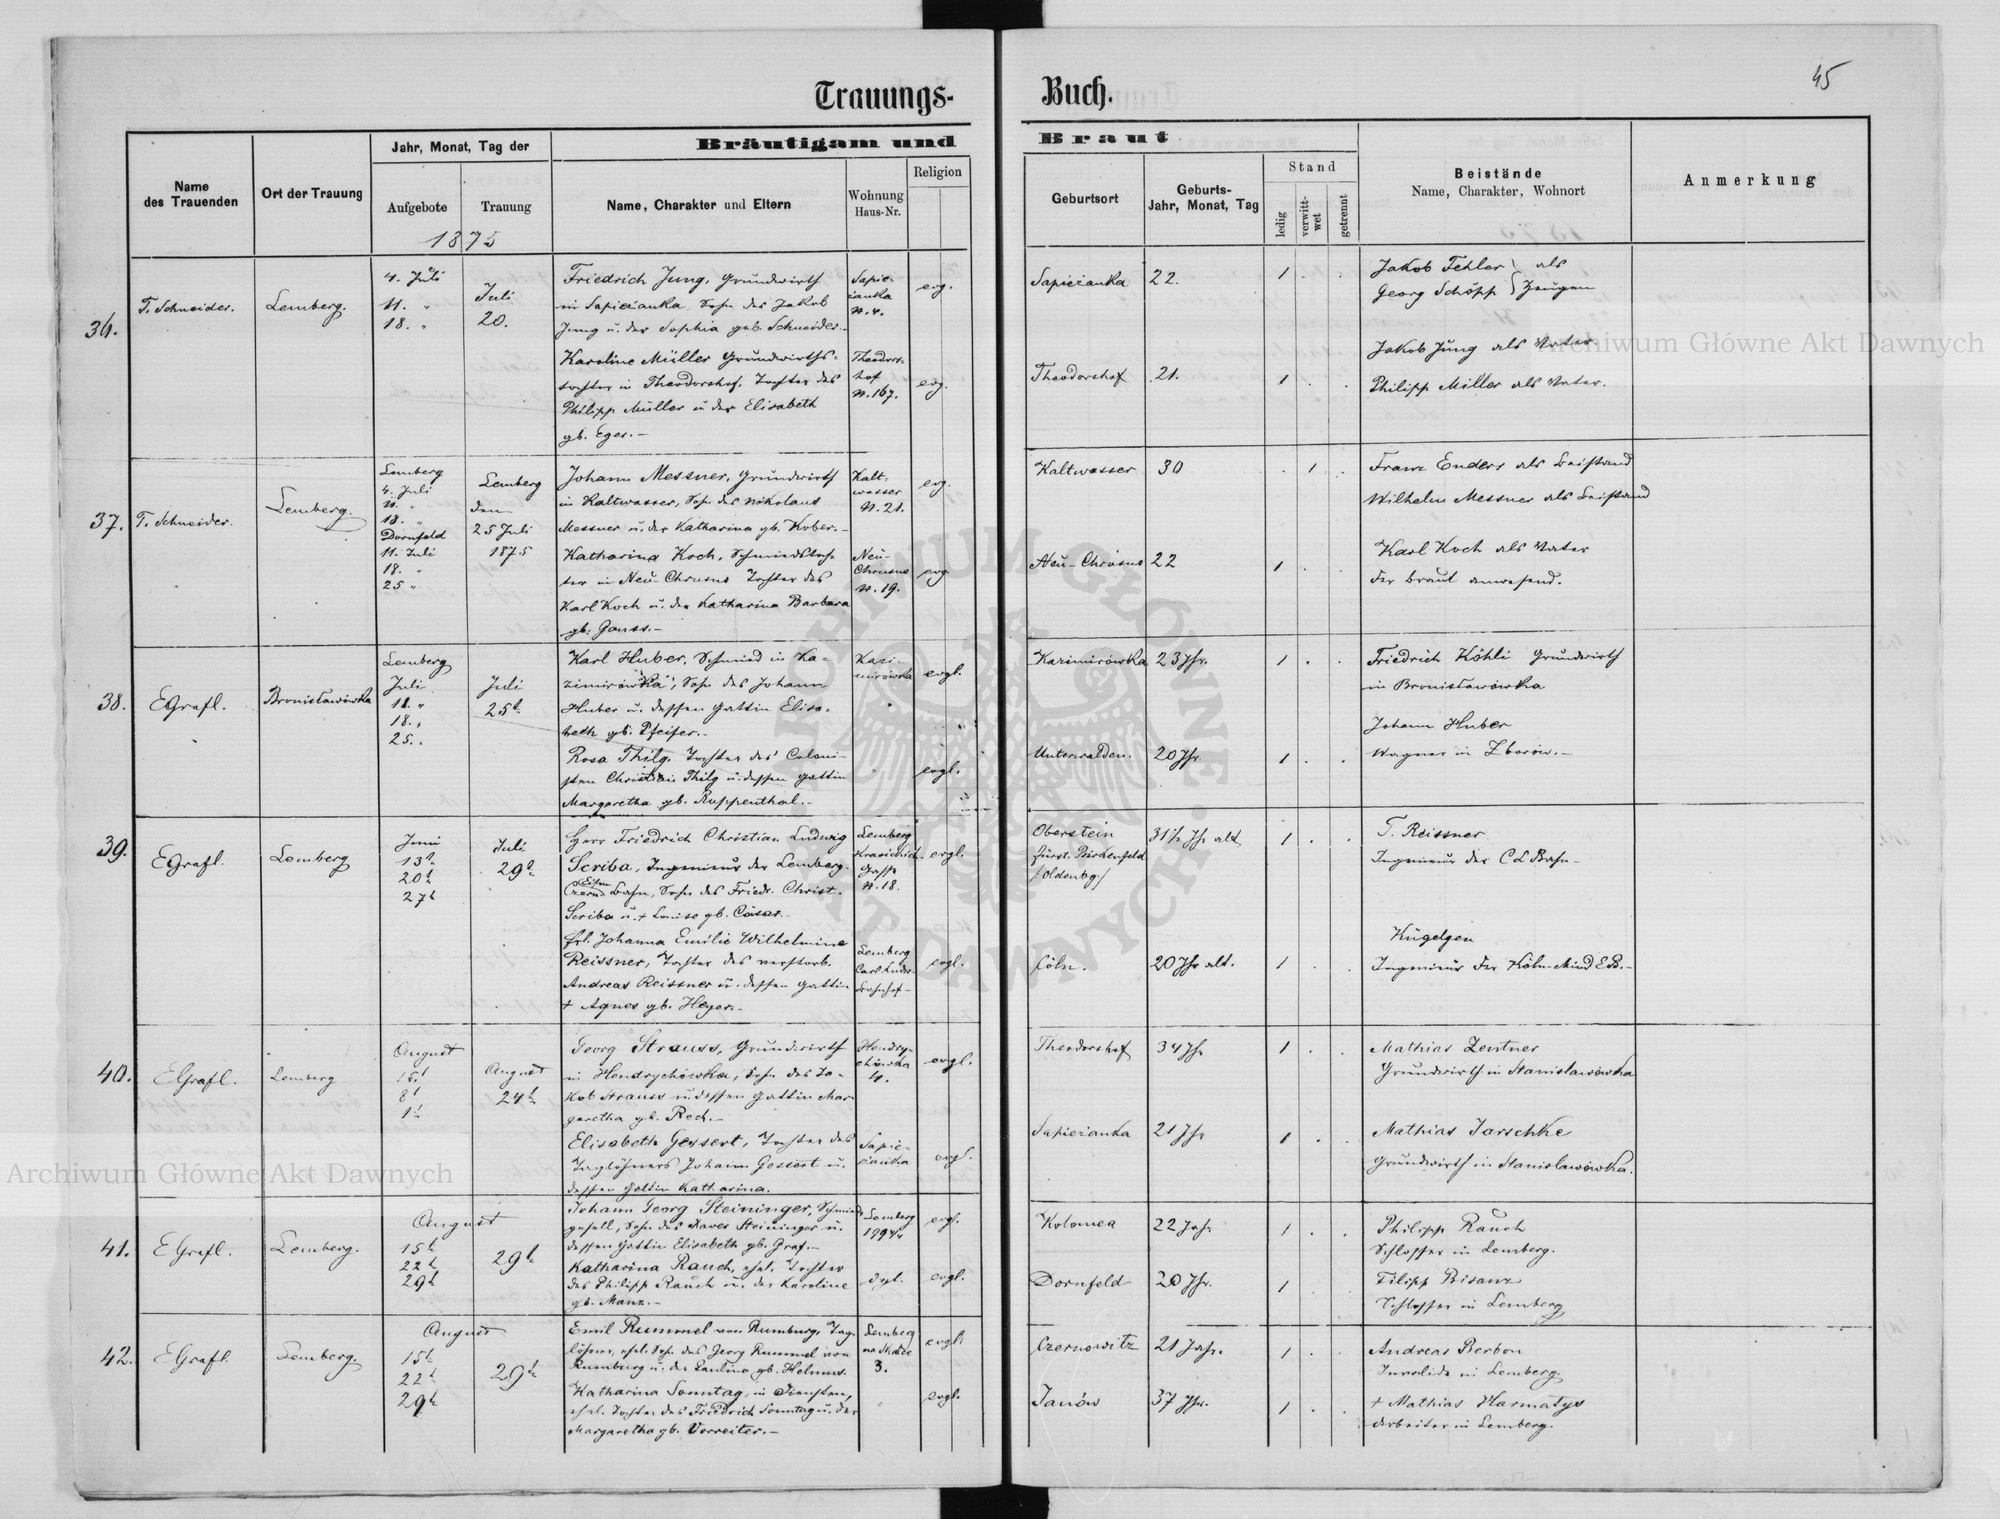 45
Trauungs-
Buch.
Name
des Trauenden
Ort der Trauung
Jahr, Monat, Tag der
Aufgebote
Trauung
1875
Bräutigam und
Name, Charakter und Eltern
Wohnung
Haus-Nr.
Religion
Braut
Geburtsort
Geburts-
Jahr, Monat, Tag
Stand
ledig
verwitt-
wet
getrennt
Beistände
Name, Charakter, Wohnort
Anmerkung
36.
T. Schneider.
Lemberg.
4. Juli
11. "
18. "
Juli
20.
Friedrich Jung, Grundwirth
in Sapieżanka, Sohn des Jakob
Jung u. der Sophia geb. Schneider.-
Sapie-
żanka
N. 4.
evg.
Sapieżanka
22.
1
Jakob Fehler } als
Georg Schöpp } Zeugen
Karoline Müller Grundwirths-
tochter in Theodorshof, Tochter des
Philipp Müller u der Elisabeth
gb. Eger.-
Theodors-
hof
N. 167.
evg.
Theodorshof
21.
1
Jakob Jung als Vater
Philipp Miller als Vater.
37.
T. Schneider.
Lemberg.
Lemberg
4. Juli
11. "
18. "
Dornfeld
11. Juli
18. "
25 "
Lemberg
den
25 Juli
1875
Johann Messner, Grundwirth
in Kaltwasser, Sohn des Nikolaus
Messner u. der Katharina gb. Kober.-
Kalt-
wasser
N. 21.
evg.
Kaltwasser
30
1
Franz Enders als Beistand
Wilhelm Messner als Beistand
Katharina Koch, Schmiedstoch-
ter in Neu-Chrusno Tochter des
Karl Koch u. der Katharina Barbara
gb. Gauss.-
Neu-
Chrusno
N. 19.
evg.
Neu-Chrusno
22
1
Karl Koch als Vater
der Braut anwesend.
38.
EGrafl.
Bronisławówka
Lemberg
Juli
11. "
18. "
25. "
Juli
25t.
Karl Huber, Schmied in Ka-
zimirówka, Sohn des Johann
Huber u. dessen Gattin Elisa-
beth gb. Pfeifer.-
Kazi-
mirówka
evgl.
Kazimirówka
23 Jhr.
1
Friedrich Köhli Grundwirth
in Bronisławówka
Rosa Thilg, Tochter des Coloni-
sten Christian Thilg u. dessen Gattin
Margaretha gb. Ruppenthal.-
"
evgl.
Unterwalden.
20 Jhr
1
Johann Huber
Wagner in Zborow.-
39.
EGrafl.
Lemberg
Juni
13t
20t
27t
Juli
29t
Herr Friedrich Christian Ludwig
Scriba, Ingenieur der Lemberg.
Czern. Bahn, Sohn des Friedr. Christ.
Scriba u. + Louise gb. Cäsar.-
Lemberg
Krasickich-
Gasse
N. 18.
evgl.
Oberstein
fürst. Birkenfeld
/Oldenbg./
31½ Jhr alt
1
T. Reissner
Ingenieur der C L Bahn-
Frl. Johanna Emilie Wilhelmine
Reissner, Tochter des verstorb.
Andreas Reissner u. dessen Gattin
+ Agnes gb. Heyer.-
Lemberg
Carl Ludw-
bahnhof-
evgl.
Cöln.
20 Jhr alt.
1
Kügelgen
Ingenieur der Köln-Mind E.B.-
40.
EGrafl.
Lemberg
August
15t
8t
1t
August
24t
Georg Strauss, Grundwirth
in Hendrychówka, Sohn des Ja-
kob Strauss u. dessen Gattin Mar-
garetha gb. Rech.-
Hendry-
chówka
4.
evgl.
Theodorshof
34 Jhr
1
Mathias Zentner
Grundwirth in Stanislawówka
Elisabeth Gessert, Tochter des
Taglöhners Johann Gessert u.
dessen Gattin Katharina.
Sapie-
żanka
evgl.
Sapieżanka
21 Jhr
1
Mathias Jarschke
Grundwirth in Stanislawówka.
41.
EGrafl.
Lemberg.
August
15t
22t
29t
29t
Johann Georg Steininger, Schmied-
gesell, Sohn des Xaver Steininger u.
dessen Gattin Elisabeth gb. Graf.-
Lemberg
199 4/4
evgl.
Kolomea
22 Jahr.
1
Philipp Rauch
Schlosser in Lemberg.
Katharina Rauch, ehel. Tochter
des Philipp Rauch u. der Karoline
gb. Manz.-
evgl.
Dornfeld
20 Jhr.
1
Filipp Bisanz
Schlosser in Lemberg
42.
EGrafl.
Lemberg.
August
15t
22t
29t
29t
Emil Rummel von Rumburg, Tag-
löhner, ehel. Sohn des Georg Rummel von
Rumburg u. der Paulina gb. Helmus.
Lemberg
3.
evgl.
Czernowitz
21 Jahr.
1
Andreas Berbon
Invalide in Lemberg.
Katharina Sonntag, in Diensten,
ehel. Tochter des Friedrich Sonntag u. der
Margaretha gb. Vorreiter.-
evgl.
Janów
37 Jhr.
1
+ Mathias Harmatys
Arbeiter in Lemberg.
Archiwum Główne Akt Dawnych
Archiwum Główne Akt Dawnych
ARCHIWUM GŁÓWNE AKT DAWNYCH